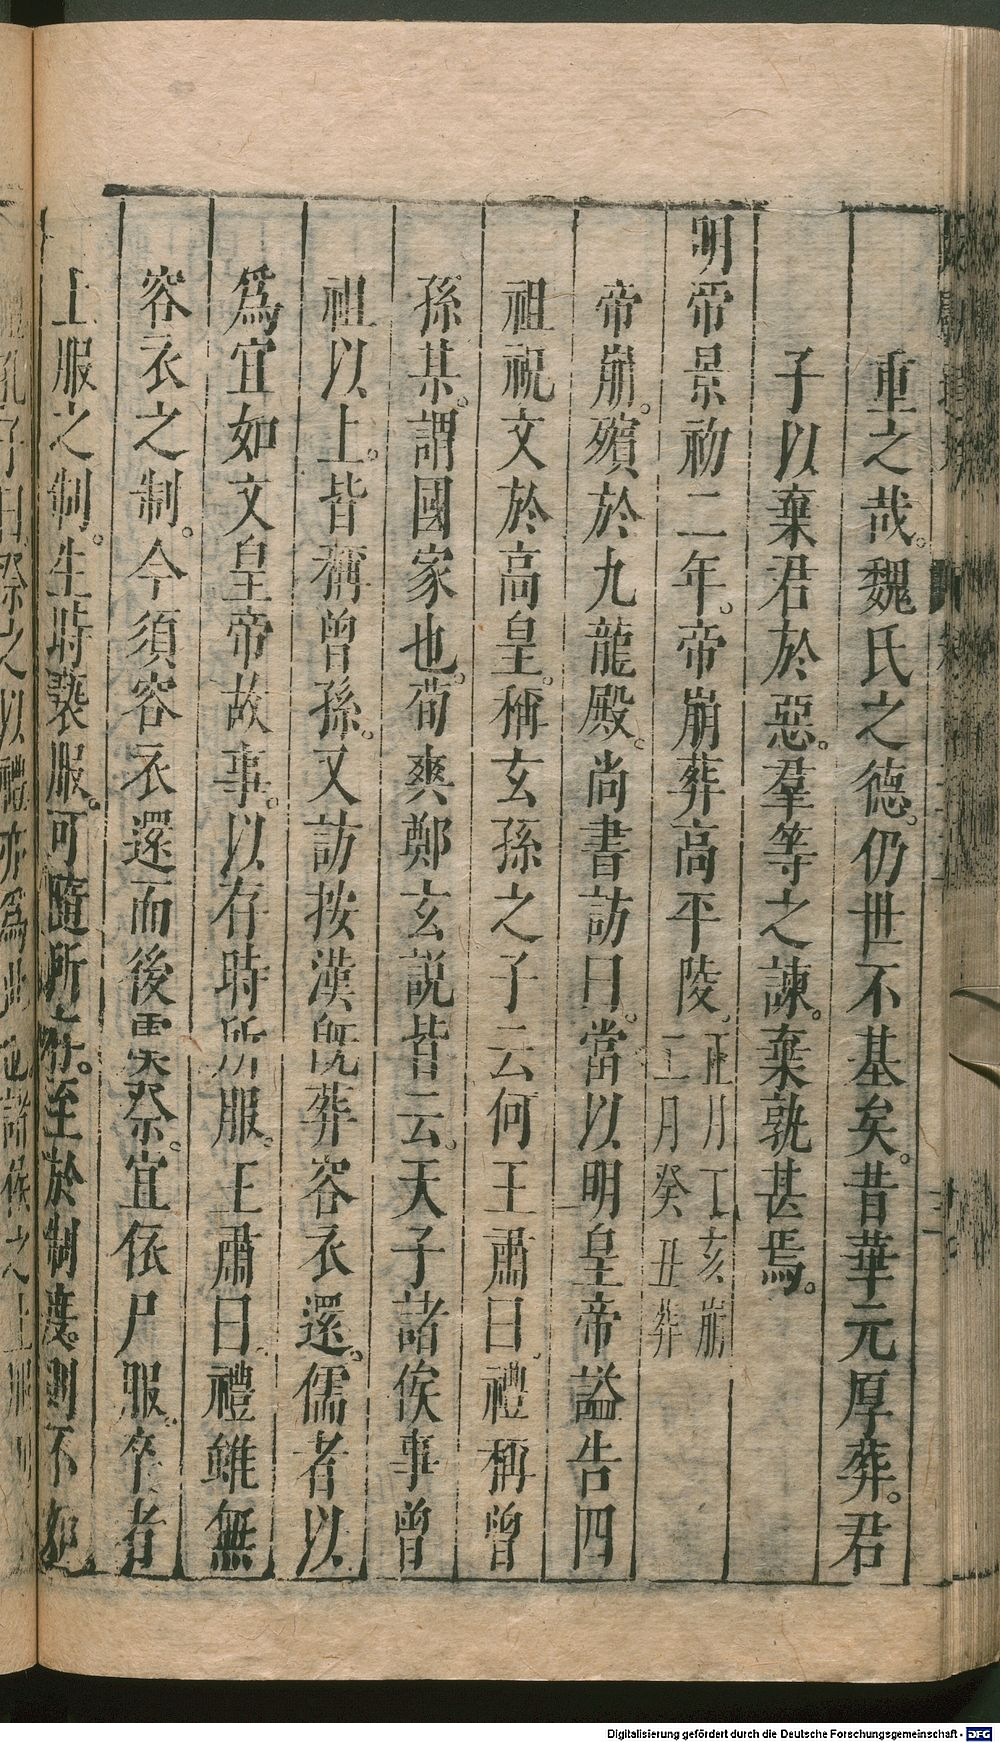 重之哉。魏氏之德。仍世不基矣。昔華元厚葬。君
子以棄君於惡。羣等之諫。棄孰甚焉。
明帝景初二年。帝崩葬高平陵。正月丁亥崩
二月癸丑葬
帝崩。殯於九龍殿。尚書訪曰。當以明皇帝謚告四
祖祝文於高皇。稱玄孫之子云何王肅曰。禮稱曾
孫某。謂國家也。荀爽鄭玄説皆云。天子諸侯事曾
祖以上。皆稱曾孫。又訪按漢既葬容衣還。儒者以
爲宜如文皇帝故事。以存時所服。王肅曰。禮雖無
容衣之制。今須容衣還而後祭。宜依尸服。卒者
上服之制。生時褻服。可隨所存。至於制度。則不如
Digitalisierung gefördert durch die Deutsche Forschungsgemeinschaft - DFG